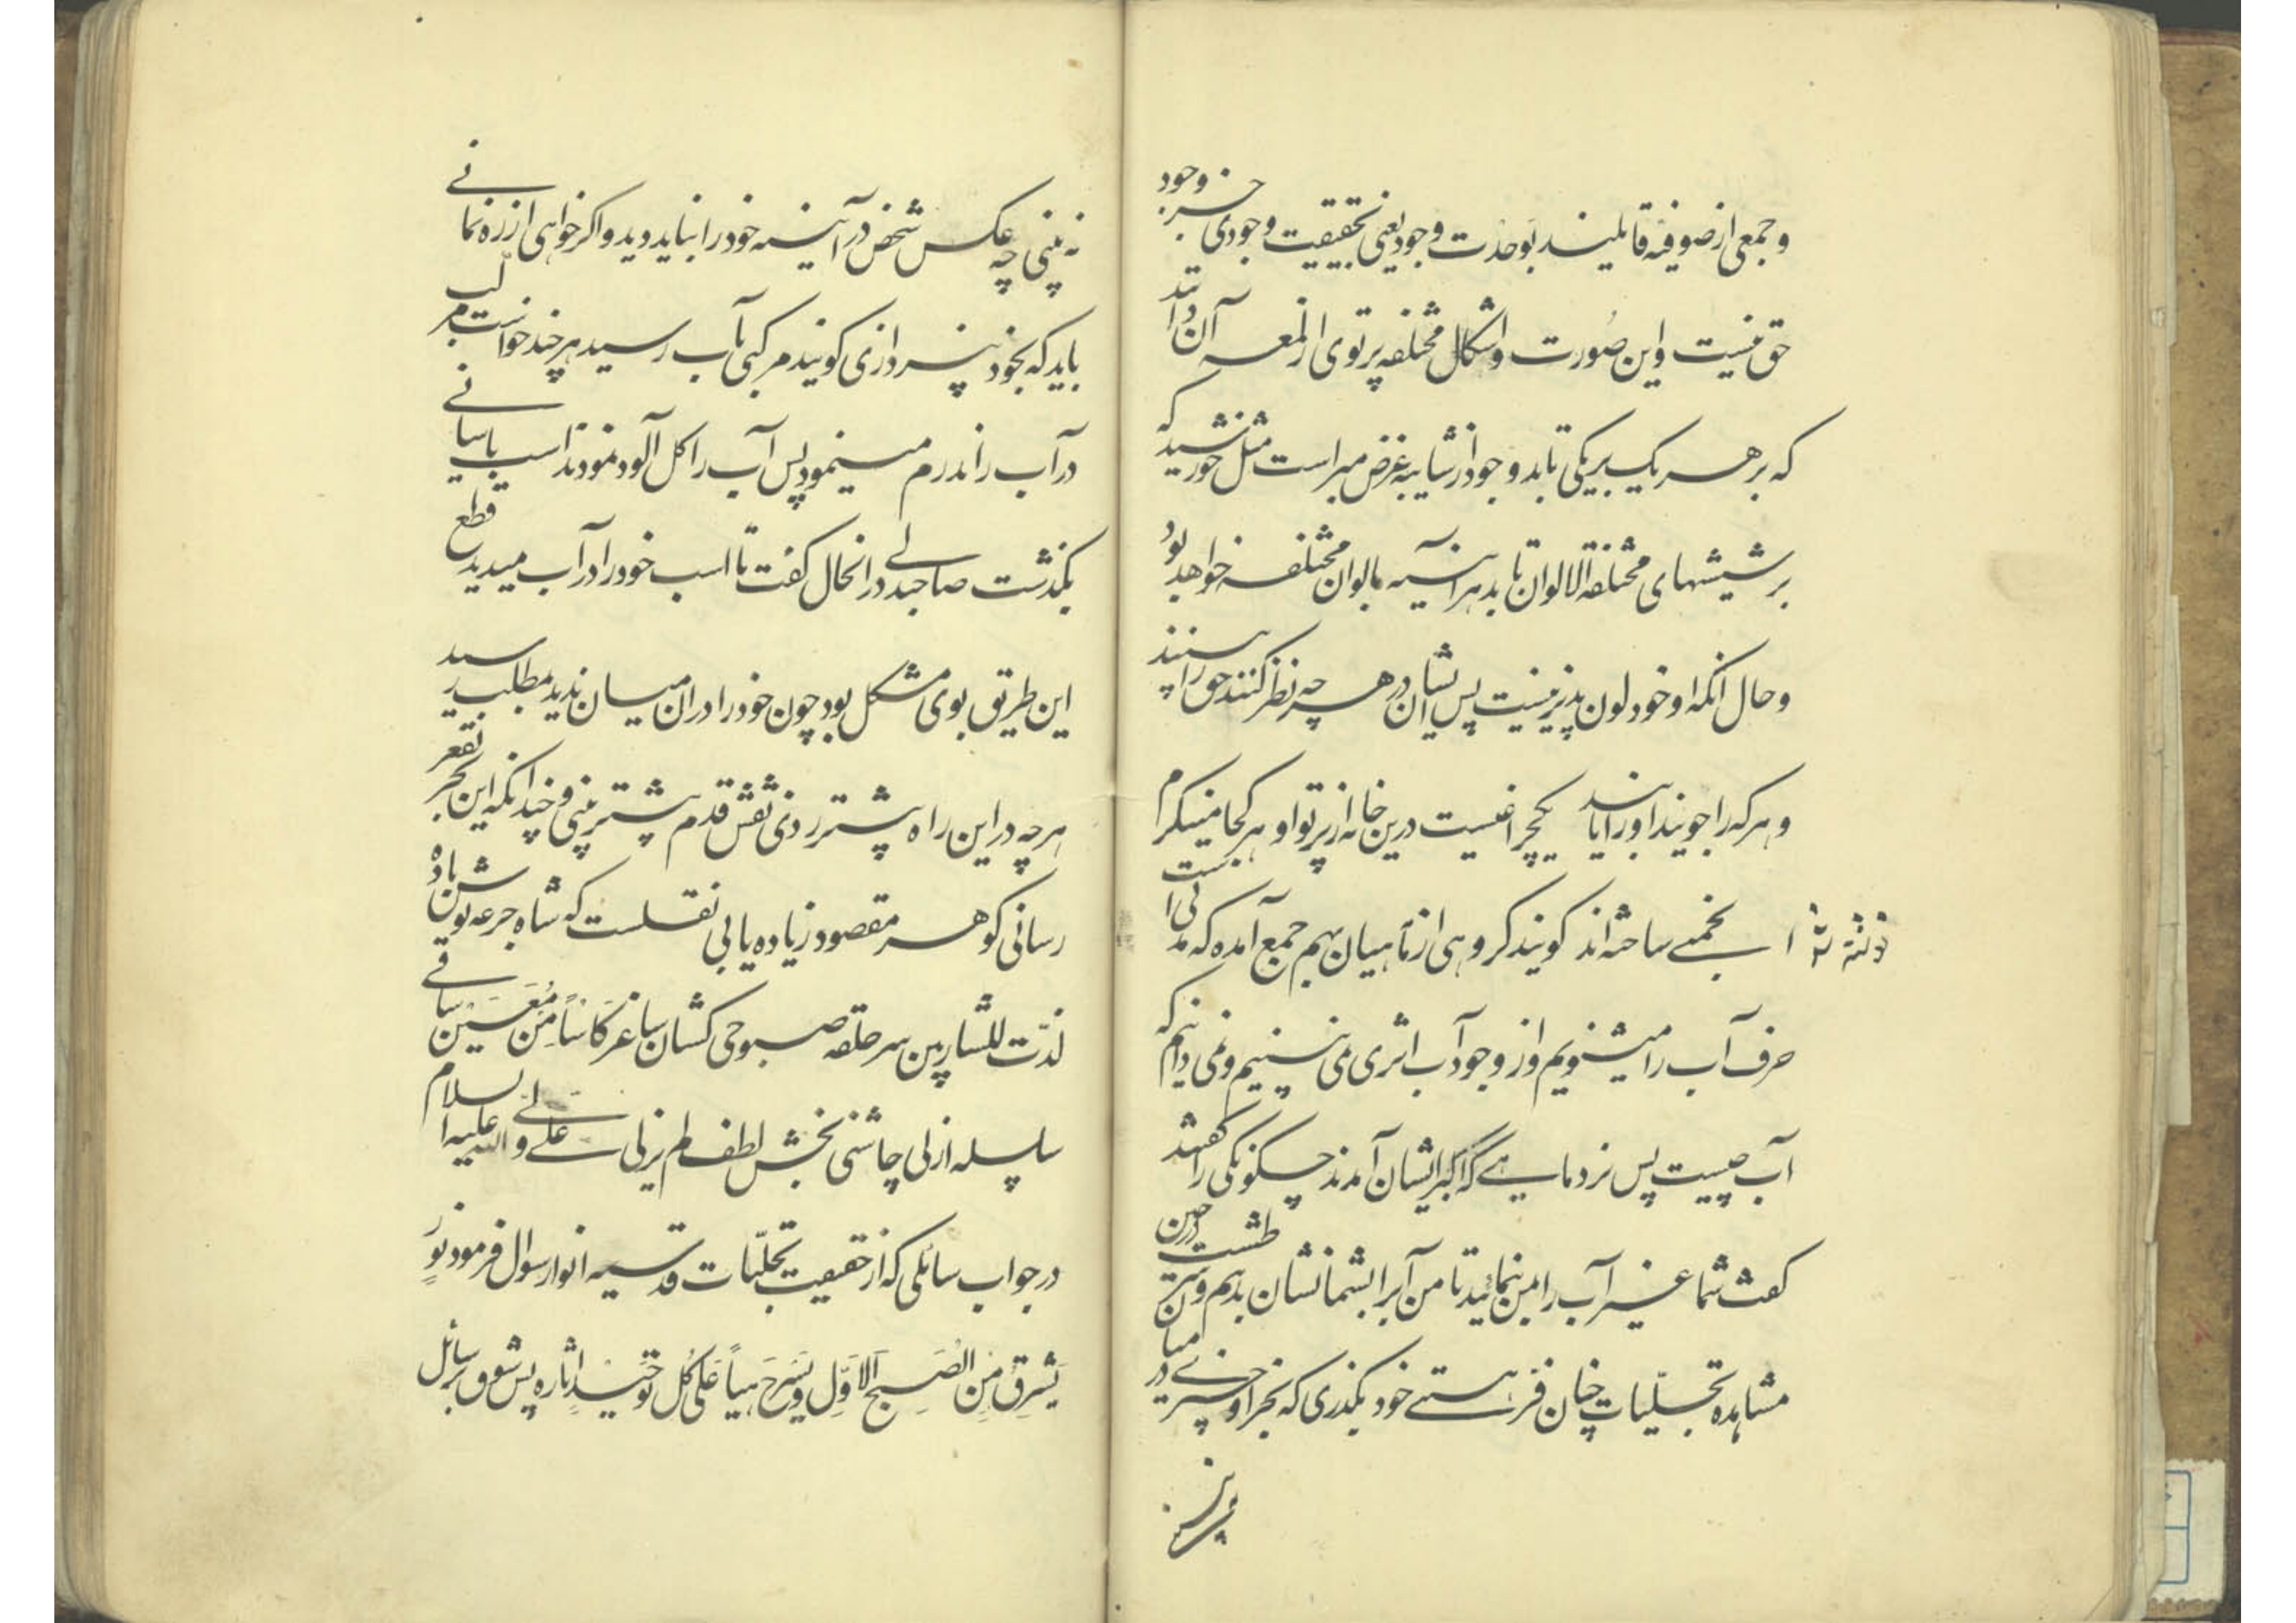 و جمعی از صوفیه قایلیند بوحدت وجود یعنی بحقیقیت وجودی جز وجود
حق نیست و این صورت و اشکال مختلفه پرتوی از لمعه آن دانند
که بر هر یک بریکی تابد و وجود از شایبه غرض مبراست مثل خورشید که
بر شیشهای مختلفة الالوان تابد هر آینه بالوان مختلفه خواهد بود
و حال انکه او خود لون پذیر نیست پس ایشان در هر چه نظر کنند حق را بینند
و هر که را جویند او را یابند یکچراغیست درین خانه از پرتو او هر کجا مینکرم
انجمنی ساخته اند کویند کروهی از ماهیان بهم جمع آمده که مدتی است
حرف آب را میشنویم و از وجود آب اثری نمی بینیم و نمی دانیم که
آب چیست پس نزد ماهی که اکبر ایشان آمدند چکونکی را کفتند
کفت شما غیر آب را بمن بنمائید تا من آبرا بشما نشان بدهم و درین طشت
مشاهده تجلیات چنان از هستی خود بکذری که بجز او چیزی در میان
نه بینی چه عکس شخص در آینه خود را نباید دید و اکر خواهی از ره نمانی
باید که بخود نپردازی کویند مرکبی بآب رسید هر چند خواست مرکب
در آب راند رم مینمود پس آب را کل آلود نمودند اسب باسانی
بکذشت صاحبدلی در انحال کفت تا اسب خود را در آب میدید قطع
این طریق بوی مشکل بود چون خود را در ان میان ندید بمطلب رسید
هر چه در این راه پیشتر روی نقش قدم پیشتر بینی و چندانکه این بحر بقعر
رسانی کوهر مقصود زیاده یابی نقلست که شاه جرعه نوشن باده
لذت للشاربین سر حلقه صبوحی کشان ساغر کاسا من معین ساقی
سلسله ازلی چاشنی بخش لطف لم یزلی علی ولی الله علیه السلام
در جواب سائلی که از حقیقیت تجلیات قدسیه انوار سوال فرمود نور
یشرق من الصبح الاول علی کل توحید اثاره پس شوق برسائل